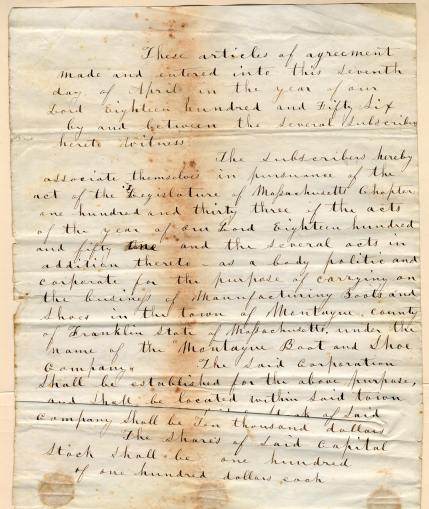 These articles of agreement
made and entered into this Seventh
day of April in the year of our
Lord Eighteen hundred and Fifty Six
by and between the several subscribers
hereto Witness
The Subscribers hereby
associate themselves in pursuance of the
act of the Legislature of Massachusetts Chapter
one hundred and thirty three of the acts
of the year of our Lord Eighteen hundred
and fifty one and the several acts in
addition thereto as a body politic and
corporate for the purpose of carrying on
the business of Manufacturing Boots and
Shoes in the town of Montague county
of Franklin State of Massachusetts, under the
name of the "Montague Boot and Shoe
Company"
The Said Corporation
Shall be established for the above purpose,
and Shall be located within Said town
Stock of Said
Company Shall be Ten thousand dollars
The Shares of Said Capital
Stock Shall be one hundred
of one hundred dollars each